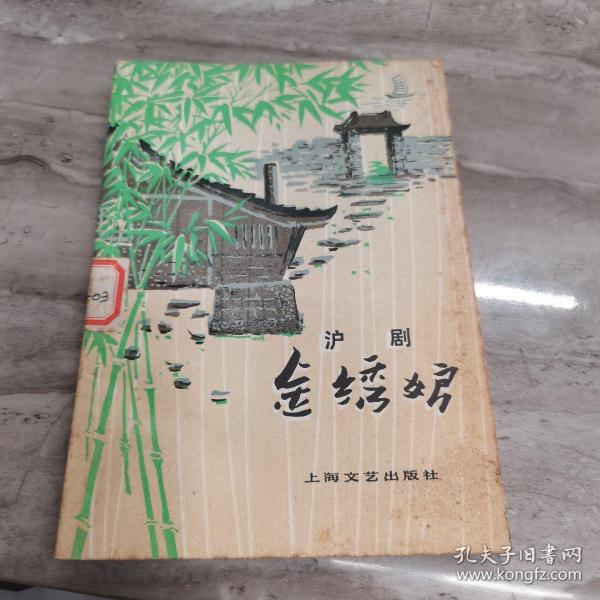 -03
沪剧
金绣娘
上海文艺出版社
孔夫子旧书网
www.kongfz.com